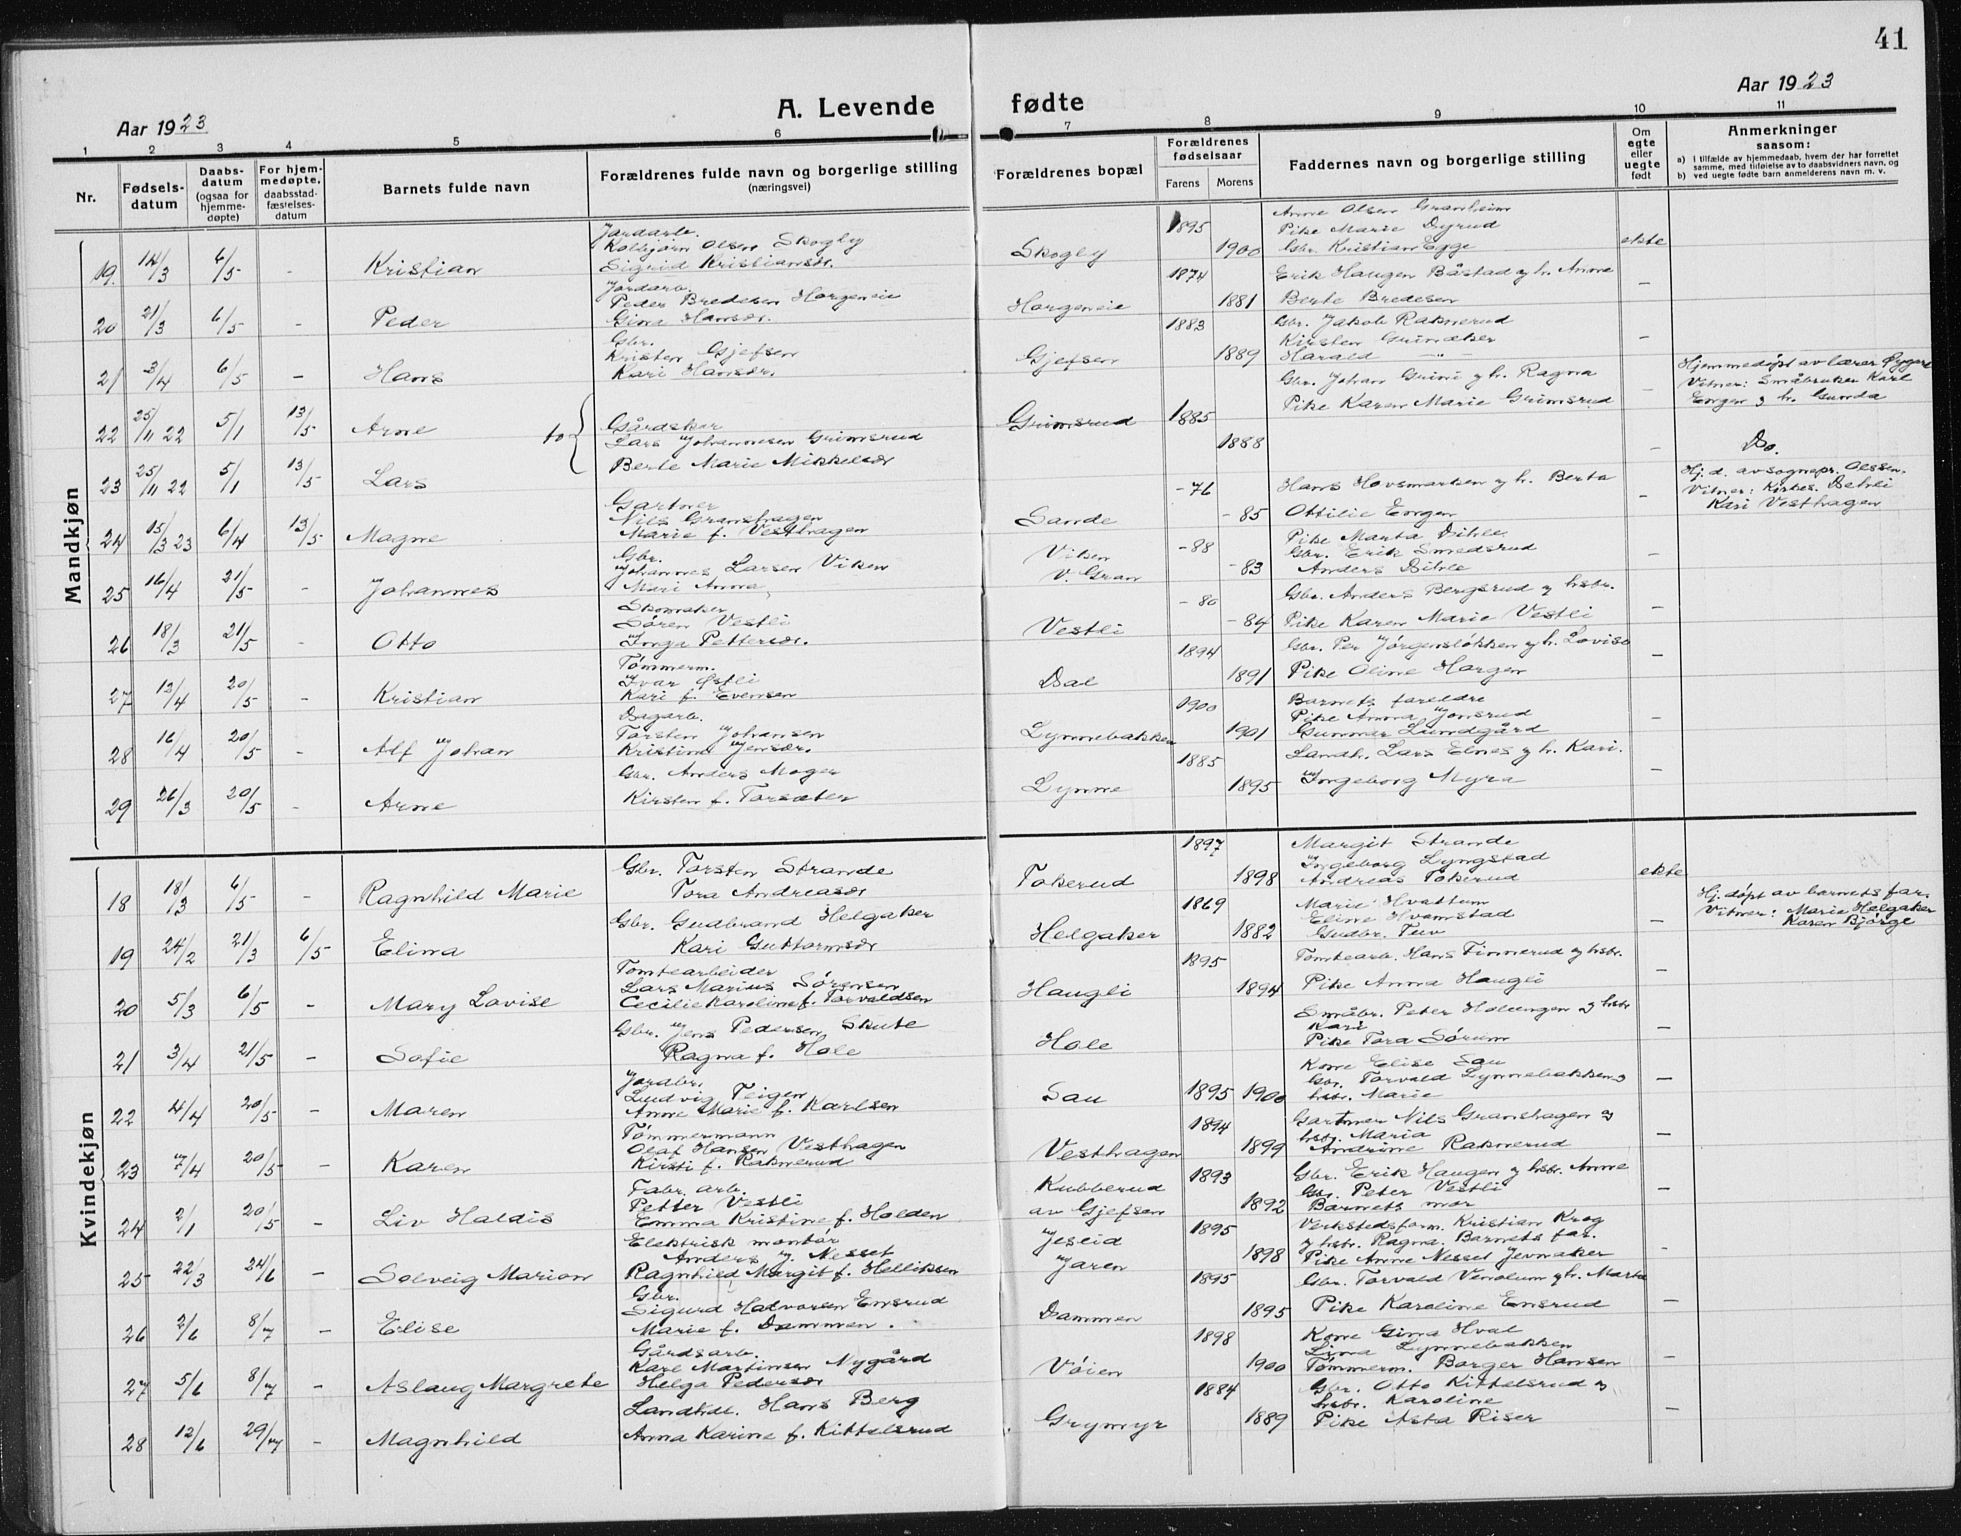 41
A. Levende fødte
Aar 1923
Aar 1923
1 2 3 4 5 6 7 8 9 10 11
Nr.
Fødsels-datum
Daabs-datum (ogsaa for hjemme-døpte)
For hjem-medøpte, daabsstad-fæstelses-datum
Barnets fulde navn
Forældrenes fulde navn og borgerlige stilling (næringsvei)
Forældrenes bopæl
Forældrenes fødselsaar
Farens Morens
Faddernes navn og borgerlige stilling
Om egte eller uegte født
Anmerkninger saasom:
a) I tilfælde av hjemmedaab, hvem der har forrettet samme, med tilføielse av to daabsvidners navn, og
b) ved uegte fødte barn anmelderens navn m. v.
Mandkjøn
19. 14/3 6/5 - Kristian
Jordarb.
Kolbjørn Olsen Skogly
Sigrid Kristiansdr.
Skogly 1895 1900
Anne Olsen Granheim
Pike Marie Dyrud
Gbr. Kristian Egge
ekte
20 21/3 6/5 - Peder
Jordarb.
Peder Bredesen Horgeneie
Gina Hansdr.
Horgeneie 1874 1881
Erik Haugen Båstad g h. Anne
Berte Bredesen
-
21 3/4 6/5 - Hans
Gbr.
Kristen Gjefsen
Kari Hansdr.
Gjefsen 1883 1889
Gbr. Jakob Raknerud
Kirsten Grinaker
Harald - " -
-
22 25/11 22 5/1 13/5 Arne
to {
Gårdskar
Lars Johannesen Grimsrud
Berte Marie Mikkelsdr
Grimsrud 1885 1888
Gbr. Johan Grini g h. Ragna
Pike Karen Marie Grimsrud
-
Hjemmedøpt av lærer Øygard
Vitner: Småbruker Karl
Engen g h. Gunda
23 25/11 22 5/1 13/5 Lars
-
Do.
24 15/3 23 6/4 13/5 Magne
Gartner
Nils Granshagen
Marie f. Vesthagen
Sande -76 -85
Hans Hovsmarken g h. Berta
Ottilie Engen
-
Hj. d. av sognepr. Olssen.
Vitner: Kirkes. Dehli
Kari Vesthagen
25 16/4 21/5 - Johannes
Gbr.
Johannes Larsen Viken
Mari Anna
Viken
v. Gran
-88 -83
Pike Marta Dihle
Gbr. Erik Smedsrud
Anders Dihle
-
26 18/3 21/5 - Otto
Skomaker
Søren Vestli
Inga Pettersdr.
Vestli -80 -84
Gbr. Anders Bergsrud g hstr.
Pike Karen Marie Vestli
-
27 13/4 20/5 - Kristian
Tømmerm.
Ivar Østli
Kari f. Evensen
Dal 1894 1891
Gbr. Per Jørgensløkken g h. Lovise
Pike Oline Horgen
-
28 16/4 20/5 - Alf Johan
Dagarb.
Torsten Johansen
Kristine Jensdr.
Lynnebakken 1900 1901
Barnets foreldre
Pike Anna Jonsrud
Gunnar Lundgård
-
29 26/3 20/5 - Arne
Gbr. Anders Moger
Kirsten f. Torsæter
Lynne 1885 1895
Landh. Lars Elnes g h. Kari.
Ingeborg Myra
-
Kvindekjøn
18 18/3 6/5 - Ragnhild Marie
Gbr. Torsten Strande
Tora Andreasdr
Tokerud 1897 1898
Margit Strande
Ingeborg Lyngstad
Andreas Tokerud
ekte
19 24/2 21/3 6/5 Elina
Gbr. Gudbrand Helgaker
Kari Guttormsdr
Helgaker 1869 1882
Marie Hvattum
Eline Hvamstad
Gudbr. Tuv
-
Hj. døpt av barnets far.
Vitner: Marie Helgaker
Karen Bjørge
20 5/3 6/5 - Mary Lovise
Tomtearbeider
Lars Marius Sørensen
Cecilie Karoline f. Torvaldsen
Haugli 1895 1894
Tomtearb. Hans Finnerud g hstr.
Pike Anna Haugli
-
21 3/4 21/5 - Sofie
Gbr. Jens Pedersen Skute
Ragna f. Hole
Hole
Småbr. Peter Holengen g hstr
Kari
Pike Tora Sørum
-
22 4/4 20/5 - Maren
Jordbr.
Ludvig Teigen
Anne Marie f. Karlsen
Sau 1895 1900
Kone Elise Sau
Gbr. Torvald Lynnebakken g
hstr. Marie
-
23 7/4 20/5 - Karen
Tømmermann
Olaf Hansen Vesthagen
Kirsti f. Raknerud
Vesthagen 1894 1899
Gartner Nils Granshagen g
hstr. Maria
Andrine Raknerud
-
24 2/1 20/5 - Liv Haldis
Fabr. arb.
Petter Vestli
Emma Kristine f. Holden
Kubberud
av Gjefsen
1893 1892
Gbr. Erik Haugen g hstr. Anne
Gbr. Peter Vestli
Barnets mor
-
25 22/3 24/6 - Solveig Marion
Elektrisk montør
Anders J. Nesset
Ragnhild Margit f. Helliksen
Jeseid
Jaren
1895 1898
Verkstedsform. Kristian Krog
g hstr. Ragna. Barnets far.
Pike Anne Nesset Jevnaker
-
26 2/6 8/7 - Elise
Gbr.
Sigurd Halvorsen Ensrud
Marie f. Dammen.
Dammen 1895 1895
Gbr. Torvald Venolum g h. Marta
Pike Karoline Ensrud
-
27 5/6 8/7 - Aslaug Margrete
Gårdsarb.
Karl Martinsen Nygård
Helga Pedersdr
Vøien 1898 1900
Kone Gina Hval
Lina Lynnebakken
Tømmerm. Borger Hansen
-
28 12/6 29/7 - Magnhild
Landhdl. Hans Berg
Anna Karine f. Kittelsrud
Grymyr 1884 1889
Gbr. Otto Kittelsrud g
hstr. Karoline
Pike Asta Riser
-